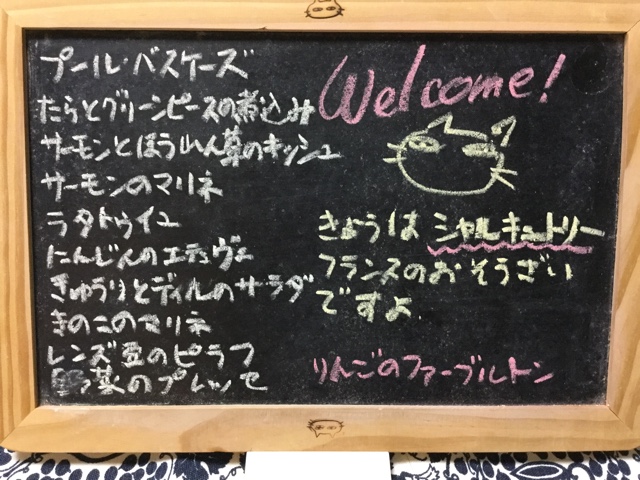 プール・バスケーズ
たらとグリーンピースの煮込み
サーモンとほうれん草のキッシュ
サーモンのマリネ
ラタトゥイユ
にんじんのエチュヴェ
きゅうりとディルのサラダ
きのこのマリネ
レンズ豆のピラフ
野菜のプレッセ
Welcome!
きょうはシャルキュトリー
フランスのおそうざい
ですよ
りんごのファーブルトン